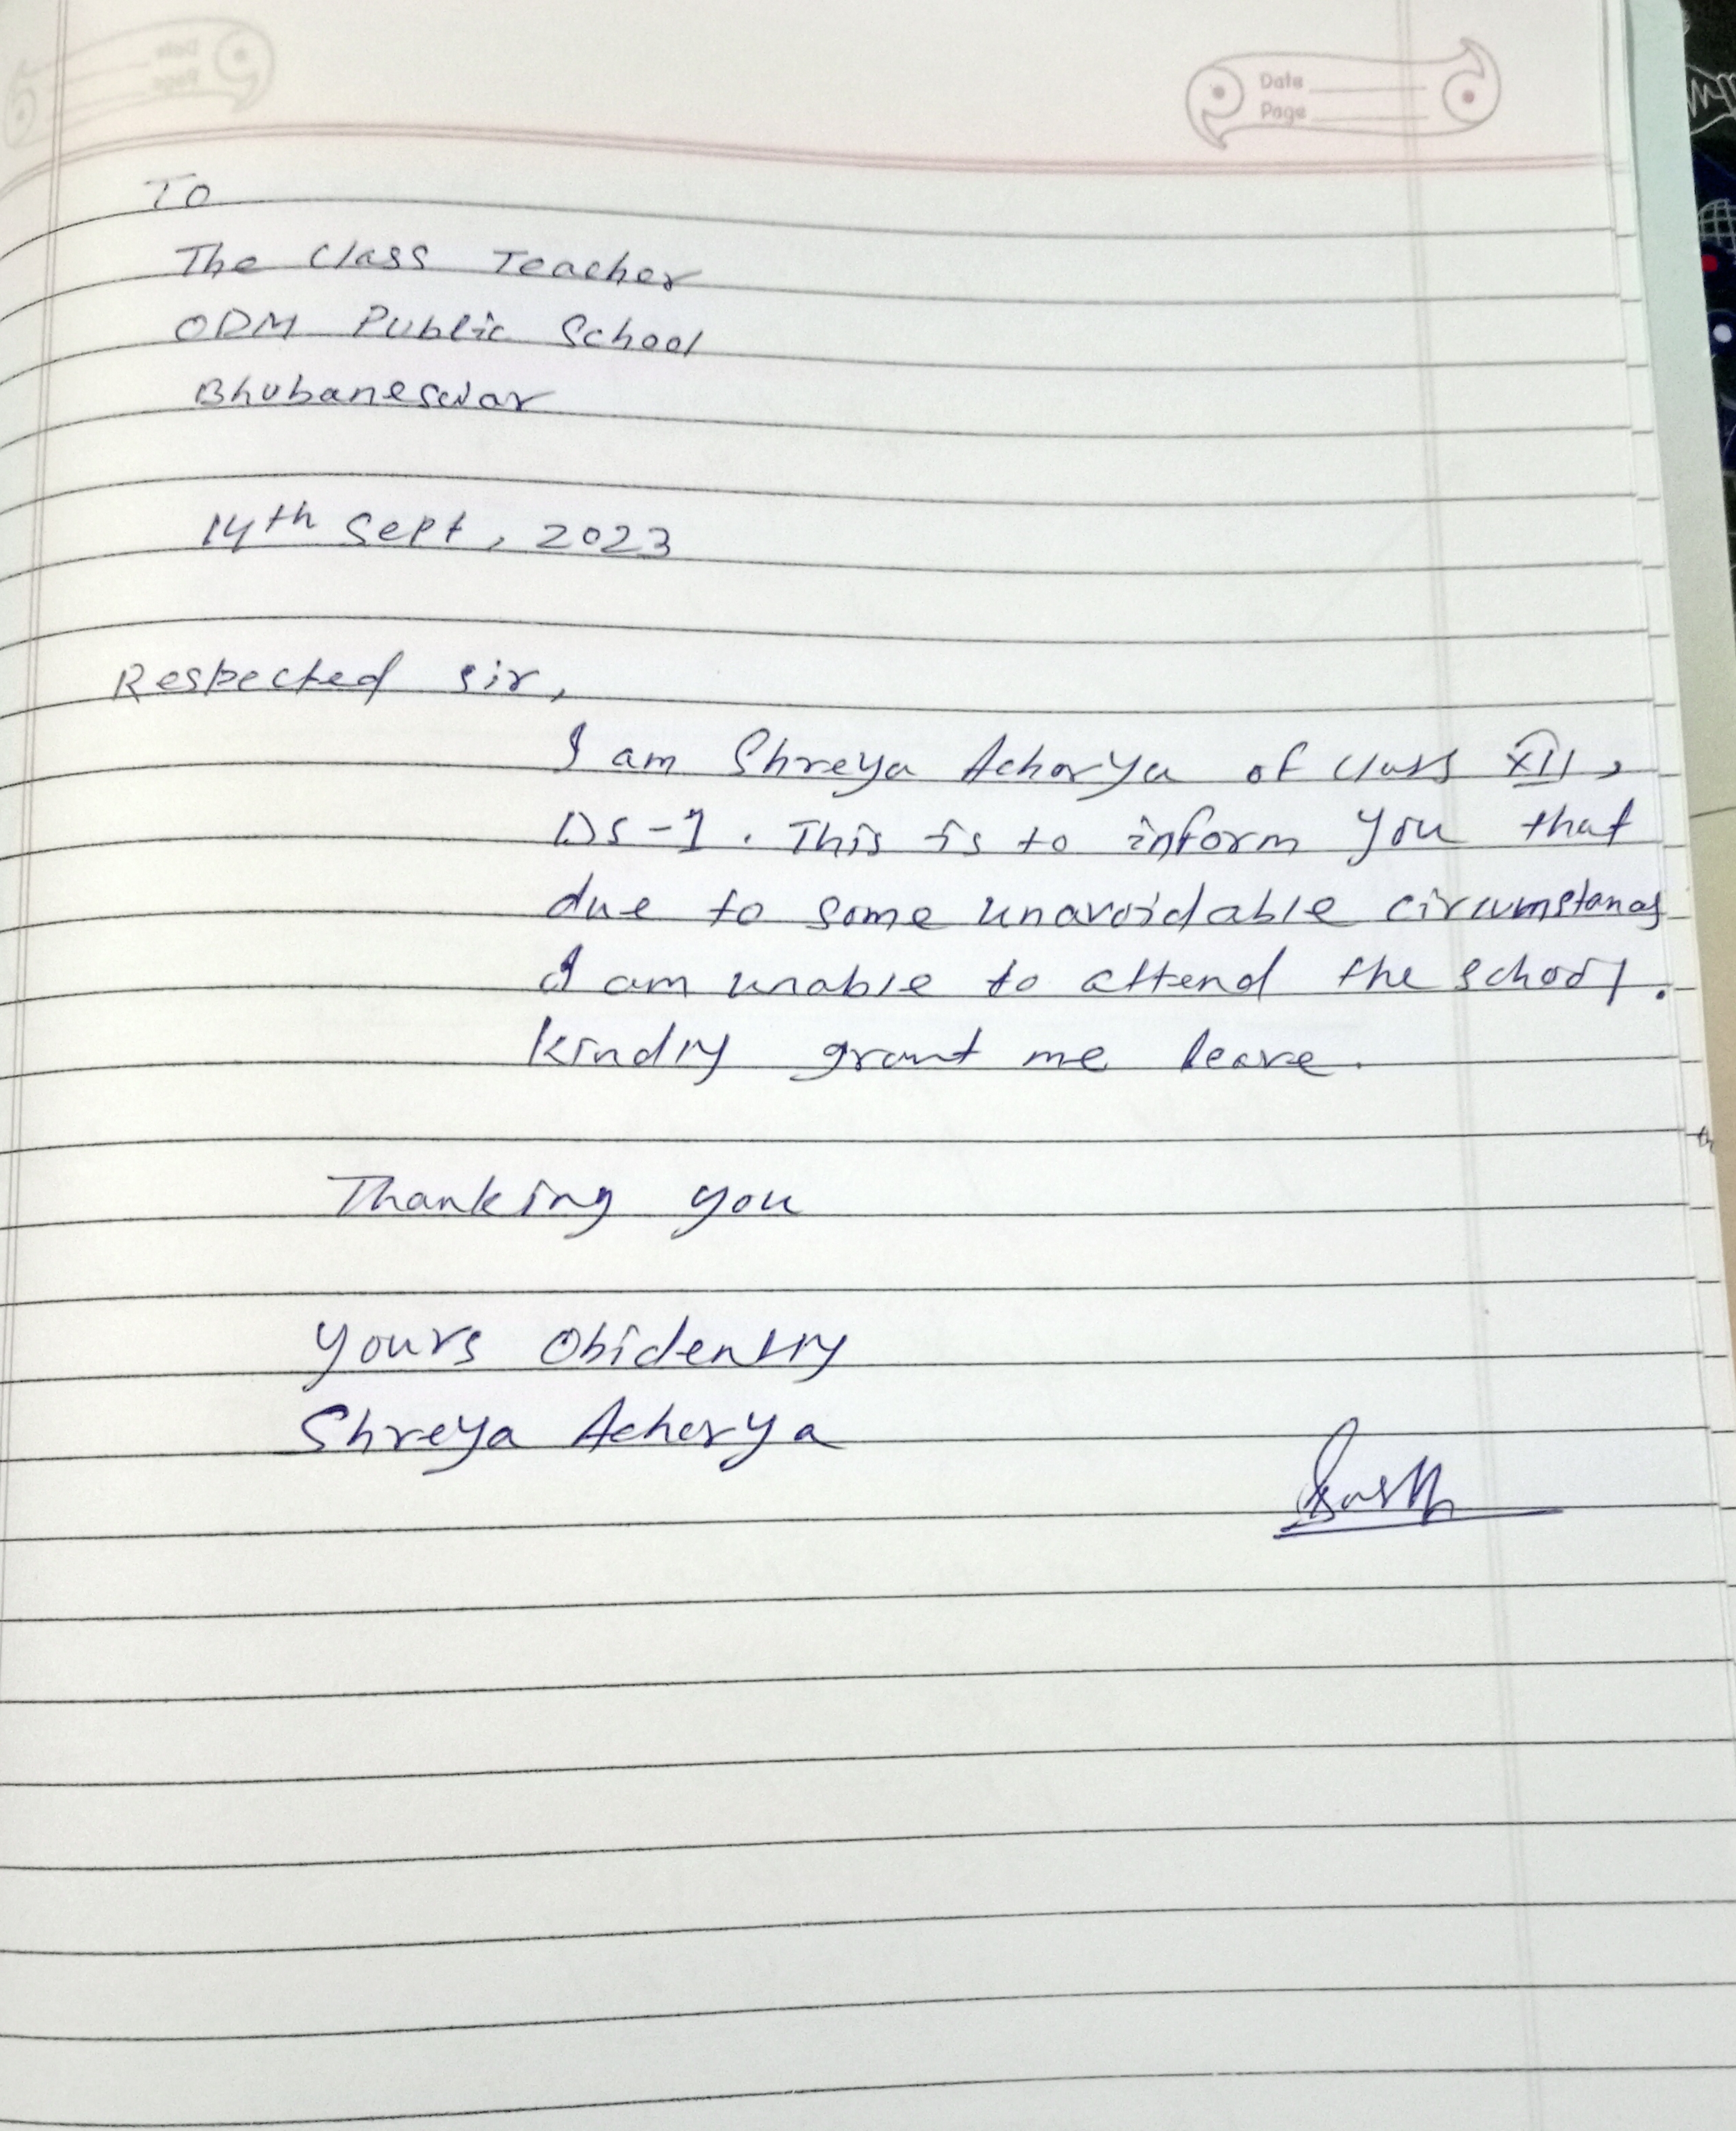 Date
Page
To
The Class Teacher
ODM Public School
Bhubaneswar
14th Sept, 2023
Respected Sir,
I am Shreya Acharya of class XII,
DS-1. This is to inform you that
due to some unavoidable circumstances
I am unable to attend the school.
Kindly grant me leave.
Thanking you
Yours Obidently
Shreya Acharya